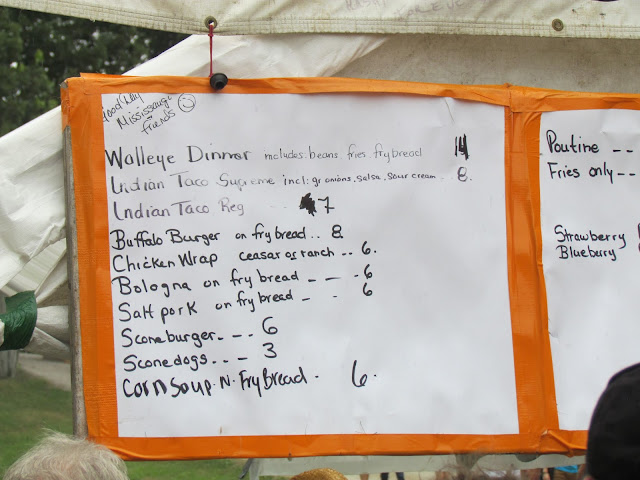 Good Day
Mississauga
friends
Walleye Dinner includes: beans, fries, frybread 14
Indian Taco Supreme incl: gr onions, salsa, sour cream .. 8.
Indian Taco Reg 7
Buffalo Burger on frybread .. 8
Chicken Wrap ceasar or ranch .. 6.
Bologna on frybread - - - 6
Salt pork on frybread - - 6
Sconeburger - - - 6
Sconedogs - - - 3
Corn Soup. N. FryBread . 6.
Poutine --
Fries only --
Strawberry
Blueberry